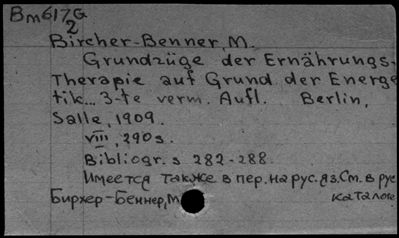 Bm617G
2
Bircher-Benner, M.
Grundzüge der Ernährungs-
Therapie auf Grund der Energe
tik... 3-te verm. Aufl. Berlin,
Salle, 1909.
VIII, 290s.
Bibliogr. s 282-288.
Имеется также в пер. на рус. яз. См. в рус
Бирхер-Беннер, М каталоге